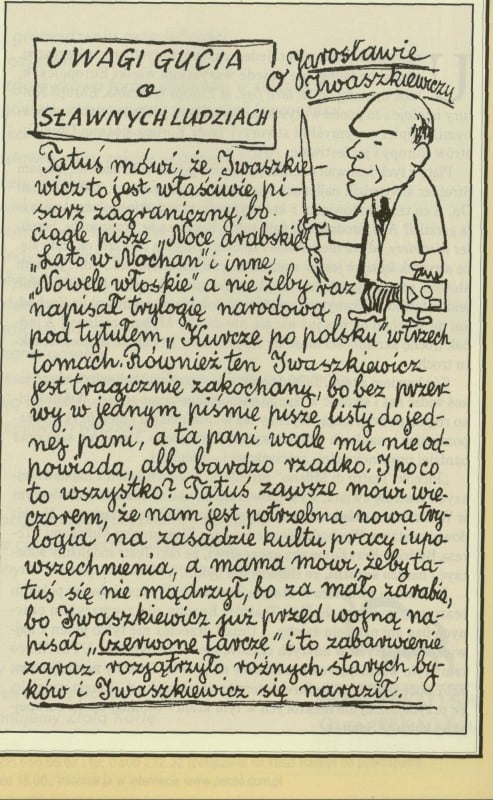 UWAGI GUCIA
o
SŁAWNYCH LUDZIACH
o Jarosławie
Iwaszkiewiczu
Tatuś mówi, że Iwaszkie-
wicz to jest właściwie, pi-
sarz zagraniczny, bo
ciągle pisze „Noce arabskie
„Lato w Nochan" i inne
„Nowele włoskie" a nie żeby raz
napisał trylogię narodową
pod tytułem „Kurcze po polsku" w trzech
tomach. Również ten Iwaszkiewicz
jest tragicznie zakochany, bo bez przer
wy w jednym piśmie pisze listy do jed-
nej pani, a ta pani wcale mu nie od-
powiada, albo bardzo rzadko. I po co
to wszystko? Tatuś zawsze mówi wie-
czorem, że nam jest potrzebna nowa try-
logia na zasadzie kultu pracy i upo
wszechnienia, a mama mówi, żeby ta-
tuś się nie mądrzył, bo za mało zarabia,
bo Iwaszkiewicz już przed wojną na-
pisał „Czerwone tarcze" i to zabarwienie
zaraz rozjątrzyło różnych starych by-
ków i Iwaszkiewicz się naraził.